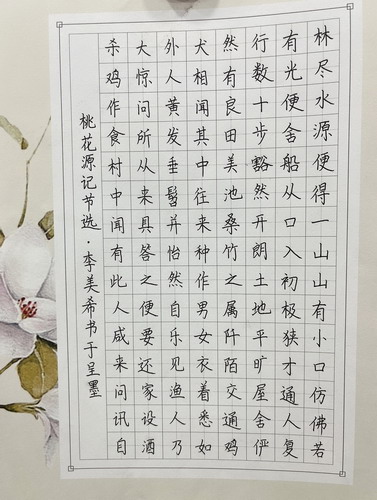 林尽水源便得一山山有小口仿佛若
有光便舍船从口入初极狭才通人复
行数十步豁然开朗土地平旷屋舍俨
然有良田美池桑竹之属阡陌交通鸡
犬相闻其中往来种作男女衣着悉如
外人黄发垂髫并怡然自乐见渔人乃
大惊问所从来具答之便要还家设酒
杀鸡作食村中闻有此人咸来问讯自
桃花源记节选·李美希书于呈墨